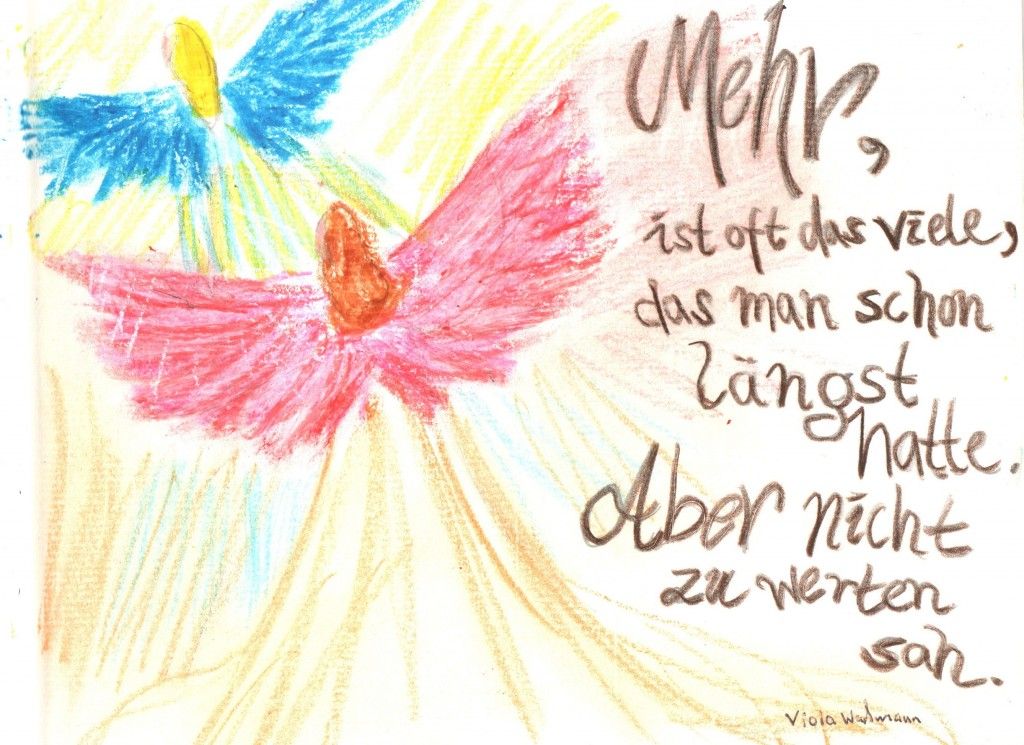 Mehr,
ist oft das viele,
das man schon
längst
hatte.
Aber nicht
zu werten
sah.
Viola